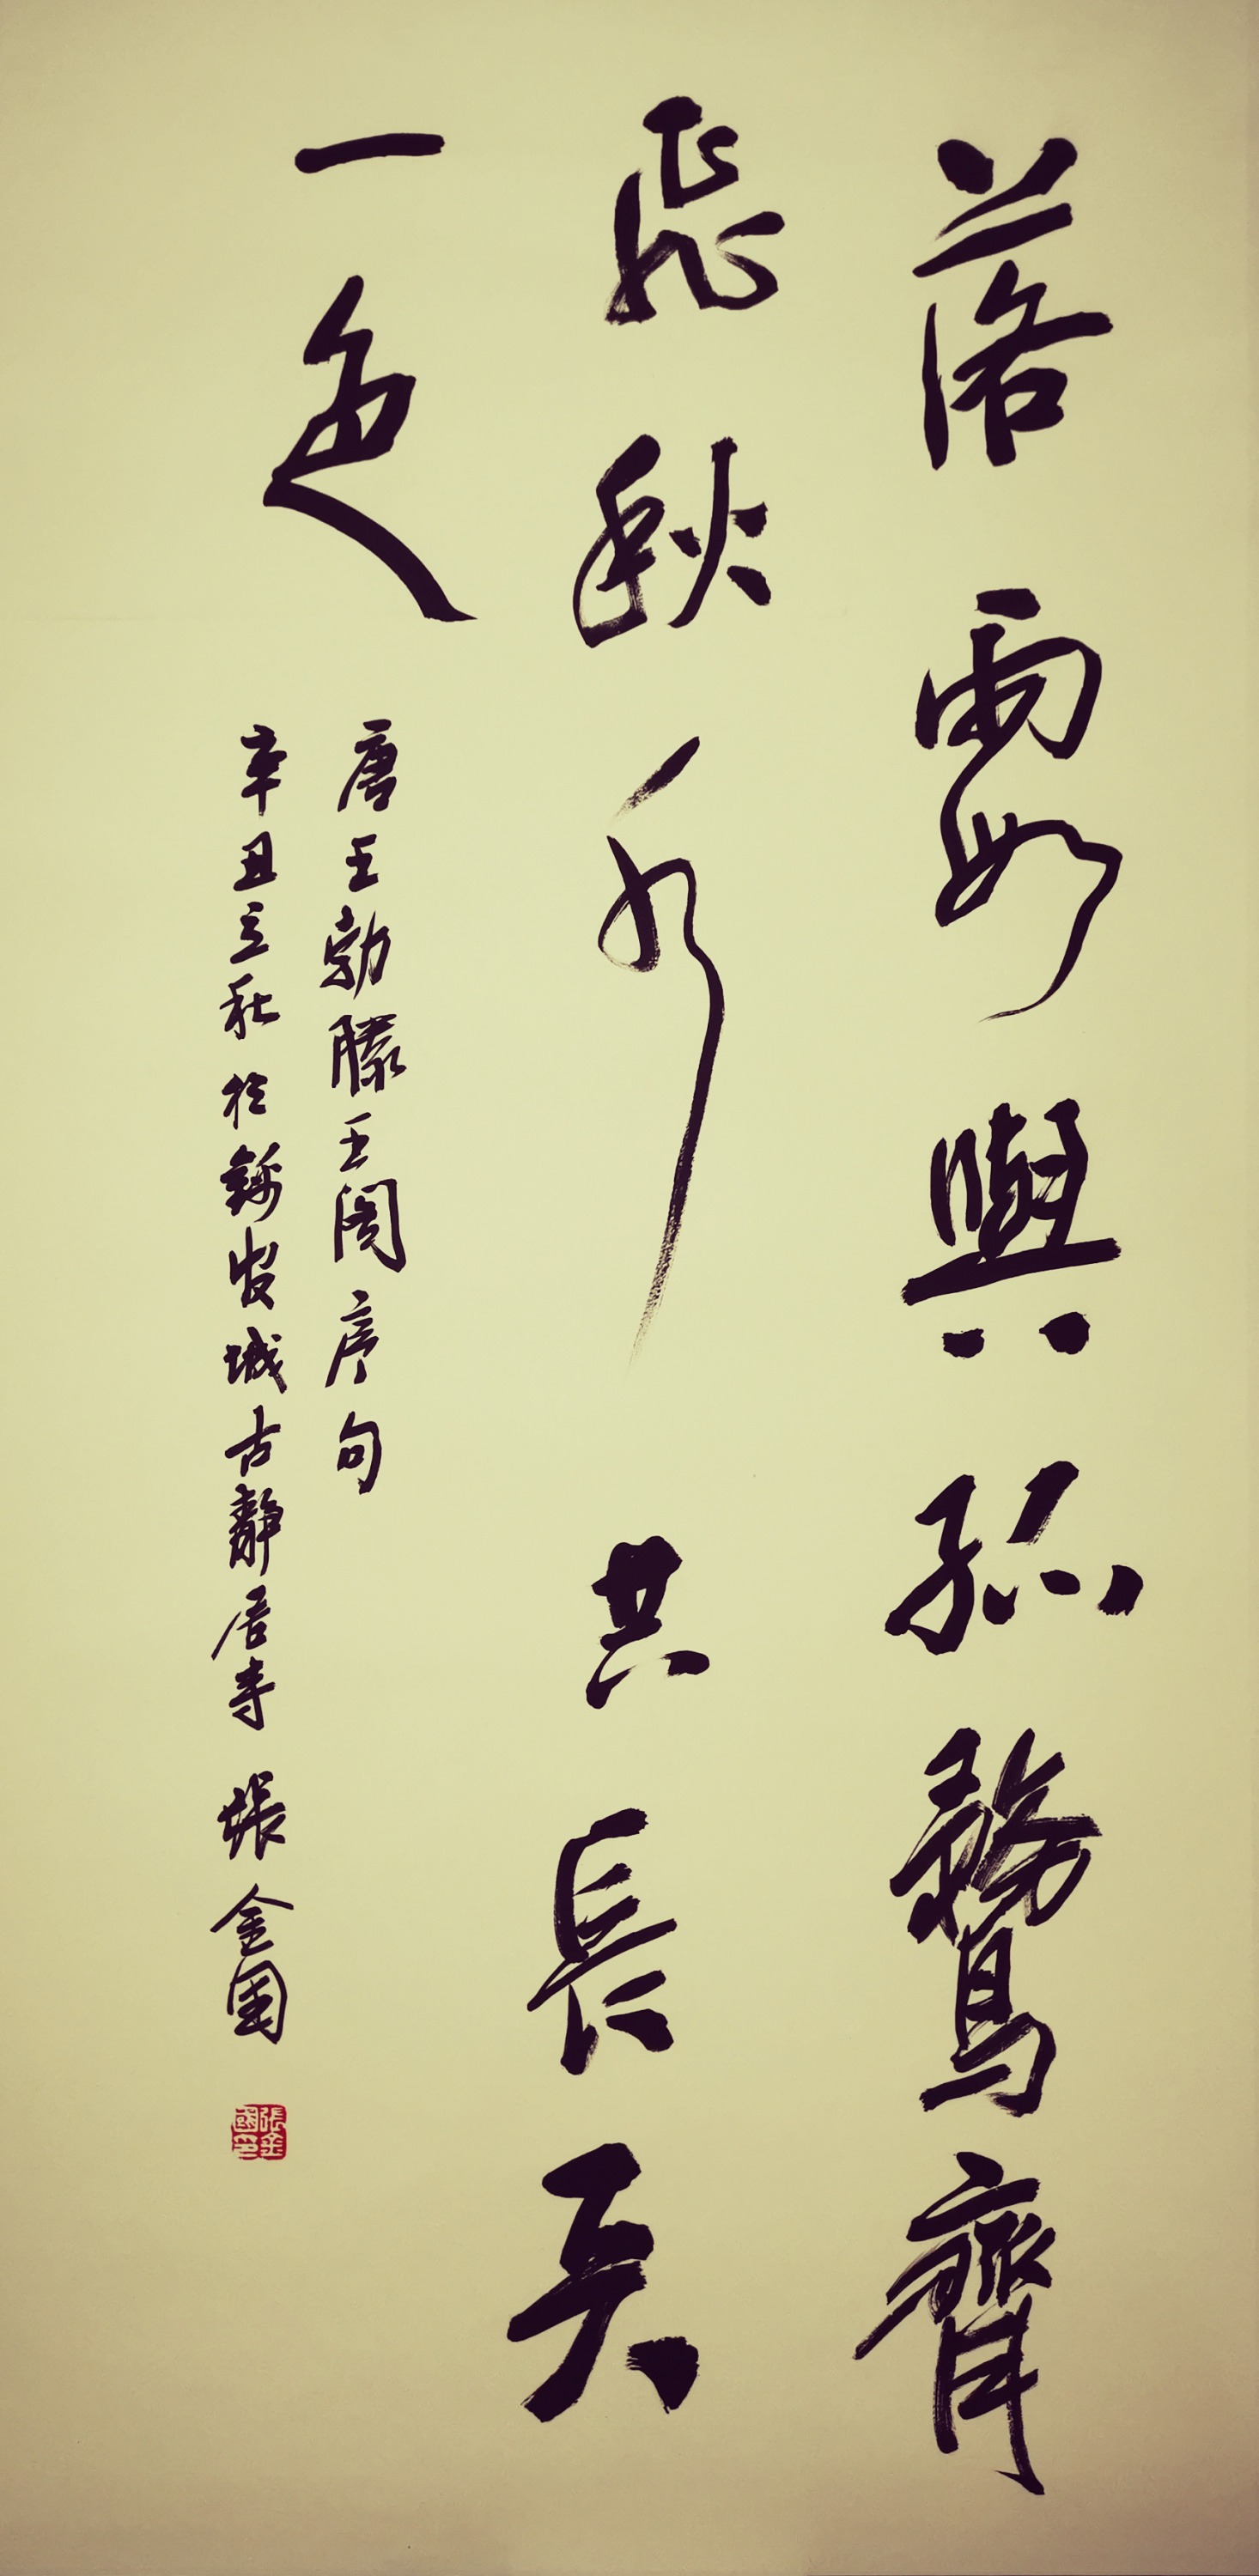 落霞與孤鶩齊
飛秋水共長天
一色
唐王勃滕王閣序句
辛丑立秋於錦官城古靜居寺張金國
張金國印